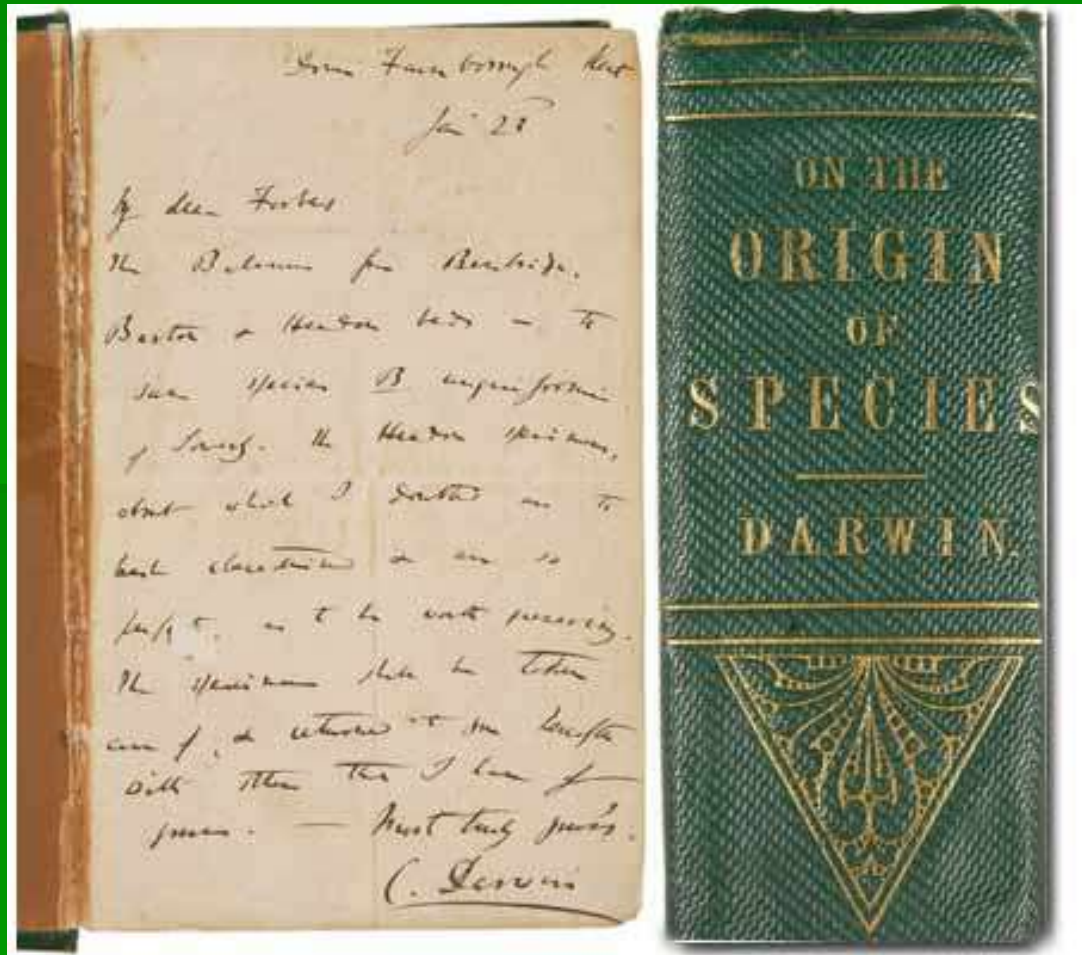 Down Farnborough Kent
Jan 23
My dear Forbes
The Balanus from Bembridge,
Barton & Headon beds is the
same species B. unguiformis
of Sowerby. The Headon specimens,
about which I doubted are to
be so
perfect, as to be worth preserving.
The specimens shall be taken
care of, & returned to you
with others that I have of
yours. — Most truly yours.
C. Darwin
ON THE
ORIGIN
OF
SPECIES
DARWIN.